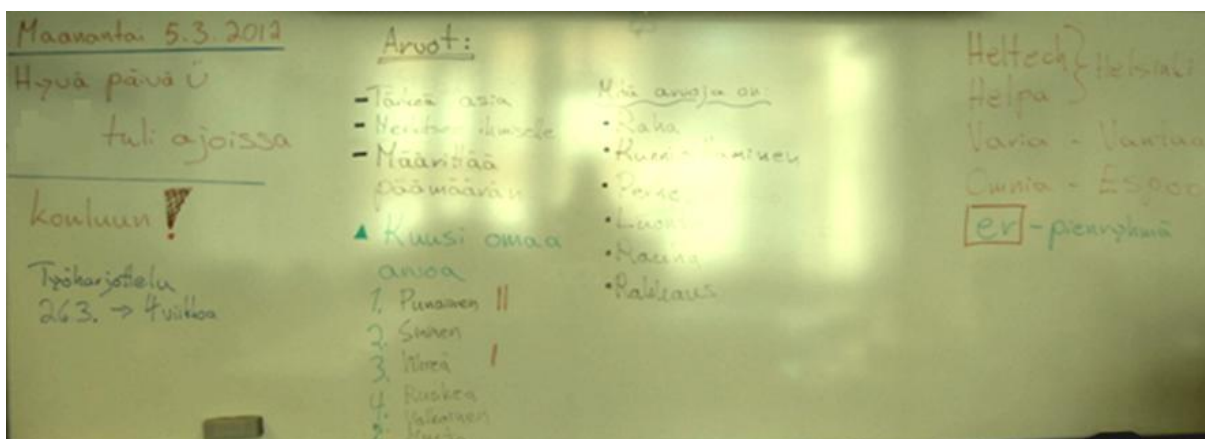 Maanantai 5.3.2012
Hyvä päivä Ü
tuli ajoissa
kouluun !
Työharjottelu
26.3. → 4 viikkoa
Arvot:
- Tärkeä asia
- Merkitsee ihmiselle
- Määrittää
päämäärän
▲ Kuusi omaa
arvoa
1. Punainen II
2. Sininen
3. Vihreä I
4. Ruskea
5. Valkoinen
Mitä arvoja on:
• Raha
• Kunnioittaminen
• Perhe
• Luonto
• Maine
• Rakkaus
Heltech } Helsinki
Helpa
Varia - Vantaa
Omnia - Espoo
er - pienryhmä